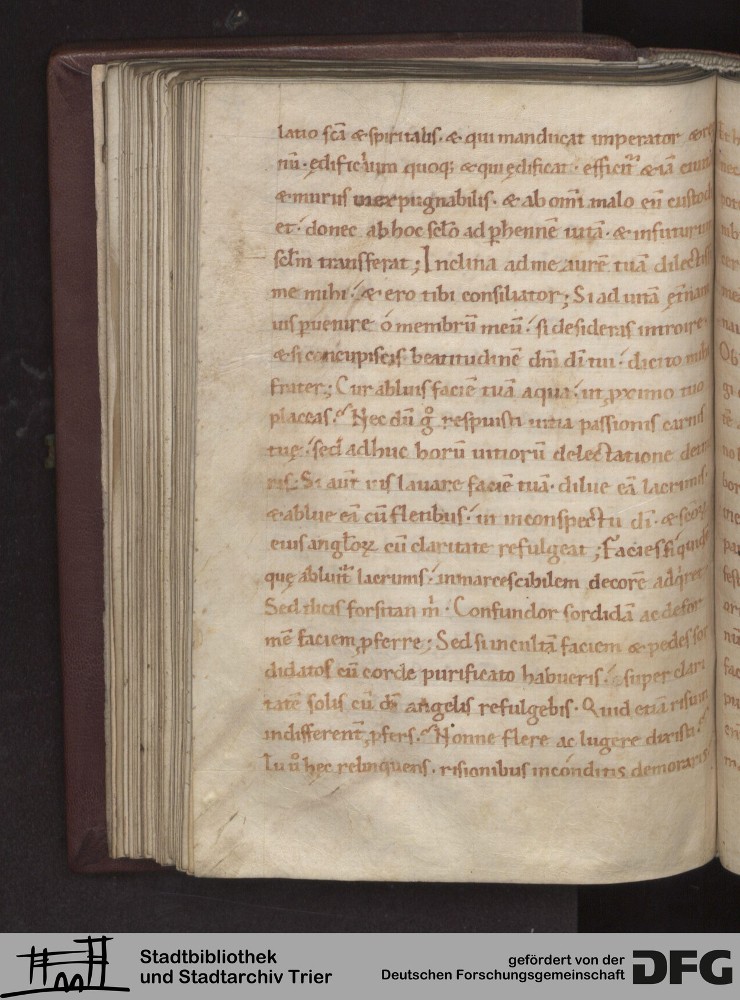 latio scā & spiritalis · & qui manducat imperator
nū · ędificium quoq; & qui ędificat · efficit̄ & iā
& murus inexpugnabilis · & ab omī malo eū custod
et · donec ab hoc sclo ad phennē uitā · & infuturum
sclm transferat ; Inclina ad me aurē tuā dilectissi
me mihi · & ero tibi consiliator ; Si ad uitā ęt̄nam
uis puenire o membrū meū · si desideras introire
& si concupiscis beatitudinē dnī dī tui · dicito mihi
frater ; Cur abluis faciē tuā aqua · ut pximo tuo
placeas ? Nec dū g̊ respuisti uitia passionis carnis
tuę · sed adhuc horū uitiorū delectatione
ris ; Si aut̄ uis lauare faciē tuā · dilue eā lacrimis ·
& ablue eā cū fletibus · ut in conspectu dī · & scōꝝ
eius anglōꝝ cū claritate refulgeat ; Facies siquidē
quę abluit̄ lacrimis · inmarcescibilem decorē adq̇ret ·
Sed dicis forsitan m̄ · Confundor sordidā ac defor
mē faciem pferre ; Sed si incultā faciem & pedes sor
didatos cū corde purificato habueris · super clari
tatē solis cū dī angelis refulgebis · Quid etiā risum
indifferent̄ pfers ? Nonne flere ac lugere dixisti ?
Tu ů hęc relinquens · risionibus inconditis demoraris
Stadtbibliothek
und Stadtarchiv Trier
gefördert von der
Deutschen Forschungsgemeinschaft
DFG